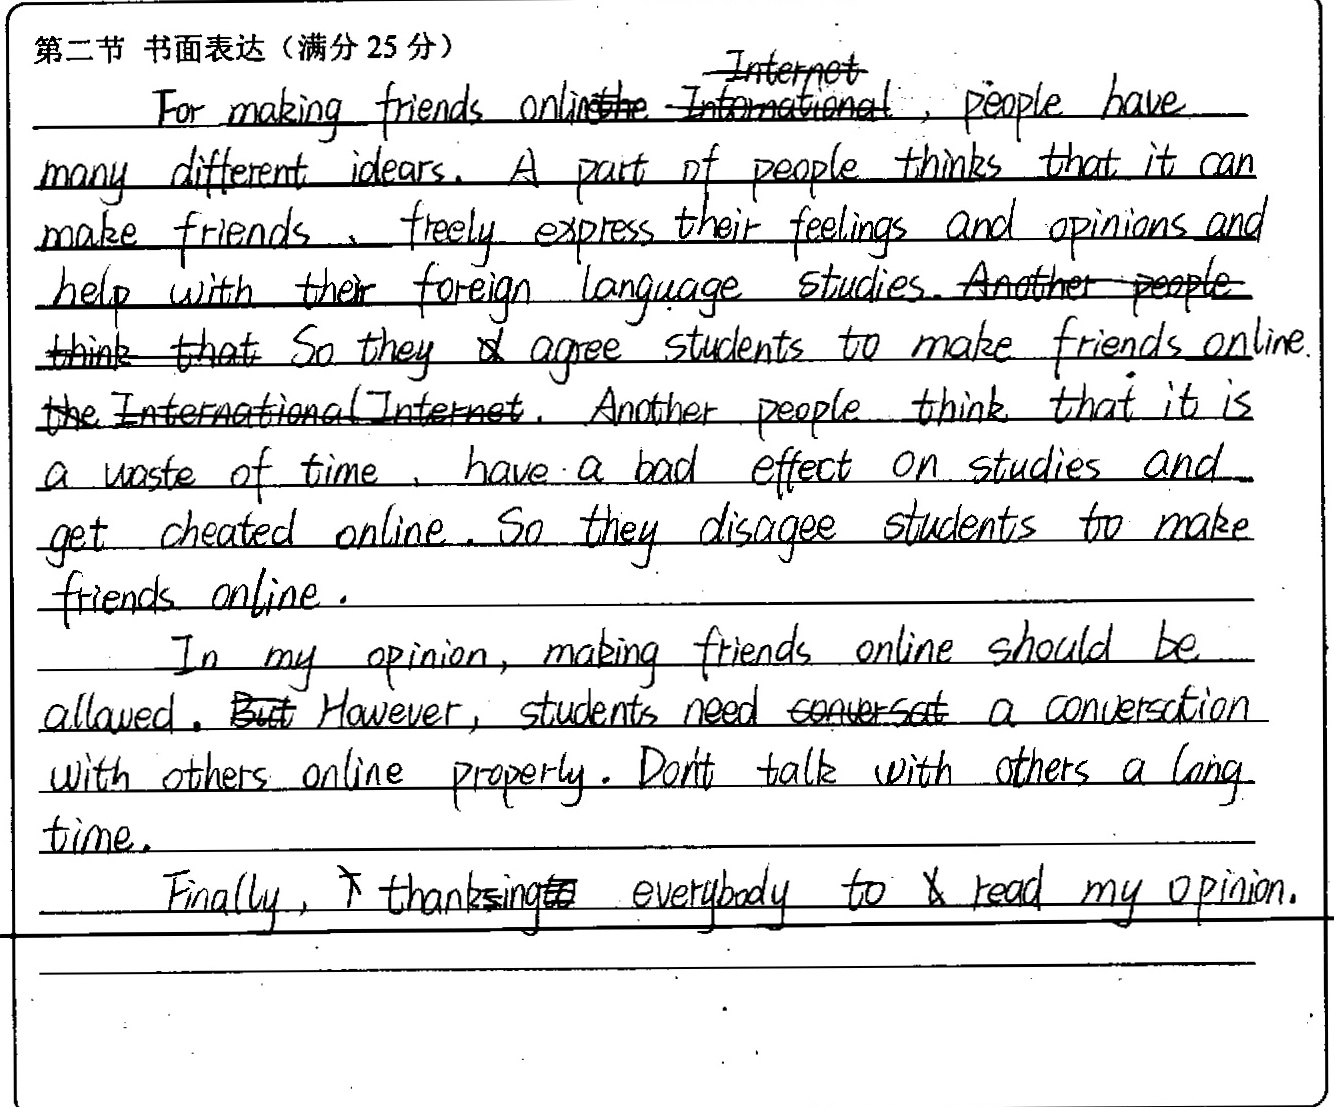 第二节 书面表达（满分 25 分）
For making friends online, people have
many different idears. A part of people thinks that it can
make friends、freely express their feelings and opinions and
help with their foreign language studies. Another people
think that So they agree students to make friends online.
the International Internet. Another people think that it is
a waste of time, have a bad effect on studies and
get cheated online. So they disagee students to make
friends online.
In my opinion, making friends online should be
allowed. But However, students need conversat a conversation
with others online properly. Don't talk with others a long
time.
Finally, thanksing everybody to read my opinion.